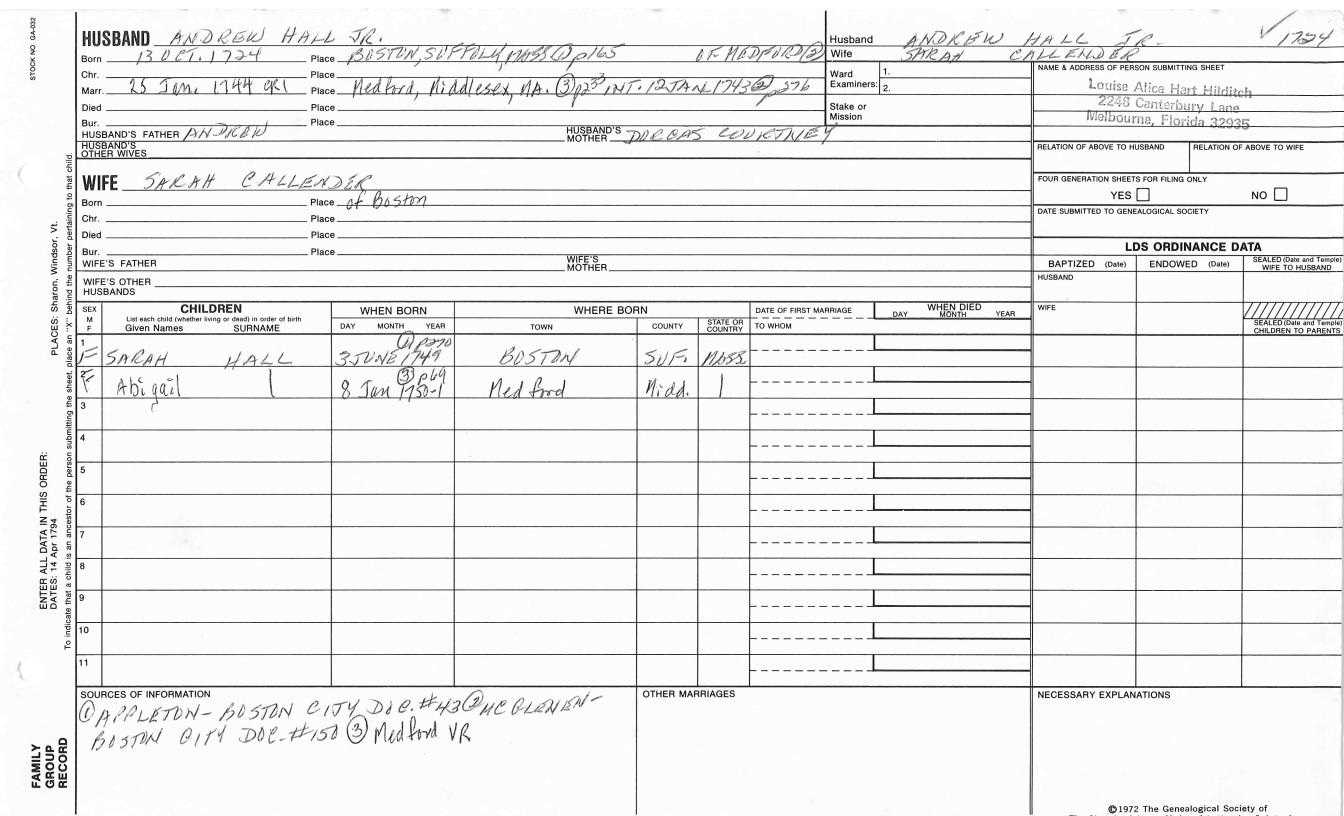 STOCK NO. GA-032
HUSBAND ANDREW HALL JR.
Born 13 OCT. 1724 Place BOSTON, SUFFOLK, MASS ① p165 OF MEDFORD ②
Chr. Place
Marr. 25 Jan. 1744 Place Medford, Middlesex, MA. ③ INT. 12 JAN 1743 ② p 376
Died Place
Bur. Place
HUSBAND'S FATHER ANDREW HUSBAND'S MOTHER DORCAS COURTNEY
HUSBAND'S OTHER WIVES
WIFE SARAH CALLENDER
Born Place of Boston
Chr. Place
Died Place
Bur. Place
WIFE'S FATHER WIFE'S MOTHER
WIFE'S OTHER HUSBANDS
Husband ANDREW HALL JR. ✓ 1724
Wife SARAH CALLENDER
Ward Examiners: 1. 2.
Stake or Mission
NAME & ADDRESS OF PERSON SUBMITTING SHEET
Louise Alice Hart Hilditch
2246 Canterbury Lane
Melbourne, Florida 32935
RELATION OF ABOVE TO HUSBAND RELATION OF ABOVE TO WIFE
FOUR GENERATION SHEETS FOR FILING ONLY
YES NO
DATE SUBMITTED TO GENEALOGICAL SOCIETY
LDS ORDINANCE DATA
BAPTIZED (Date) ENDOWED (Date) SEALED (Date and Temple) WIFE TO HUSBAND
HUSBAND
WIFE
SEALED (Date and Temple) CHILDREN TO PARENTS
SEX M F
CHILDREN
List each child (whether living or dead) in order of birth
Given Names SURNAME
WHEN BORN
DAY MONTH YEAR
WHERE BORN
TOWN COUNTY STATE OR COUNTRY
DATE OF FIRST MARRIAGE
TO WHOM
WHEN DIED
DAY MONTH YEAR
① p270
1 F SARAH HALL 3 JUNE 1749 BOSTON SUF. MASS
③ p69
2 F Abigail | 8 Jan 1750-1 Medford Midd. |
3
4
5
6
7
8
9
10
11
SOURCES OF INFORMATION
① APPLETON- BOSTON CITY DOC. #43 ② MCGLENEN-
BOSTON CITY DOC. #150 ③ Medford VR
OTHER MARRIAGES
NECESSARY EXPLANATIONS
©1972 The Genealogical Society of
PLACES: Sharon, Windsor, Vt.
To indicate that a child is an ancestor of the person submitting the sheet, place an "X" behind the number pertaining to that child.
ENTER ALL DATA IN THIS ORDER:
DATES: 14 Apr 1794
FAMILY
GROUP
RECORD